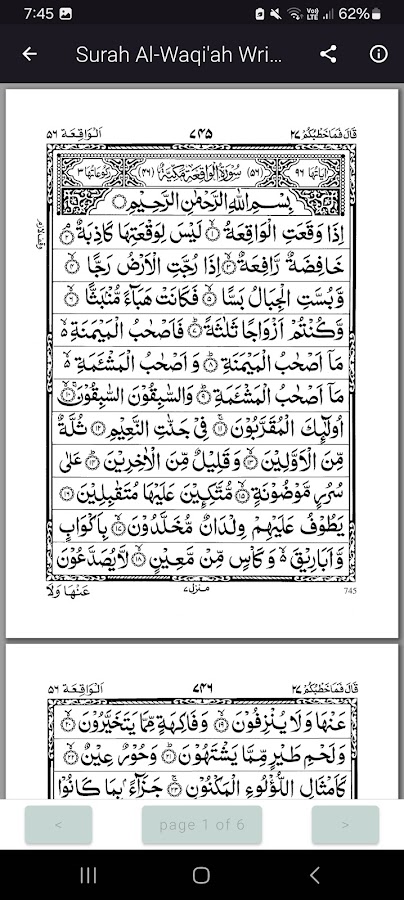 7:45 62%
Surah Al-Waqi'ah Wri...
قَالَ فَمَا خَطْبُكُمْ ٢٧ ٧٤٥ اَلْوَاقِعَة ٥٦
اٰیَاتُهَا ٩٦ (٥٦) سُوْرَةُ الْوَاقِعَةِ مَكِّيَّةٌ (٤٦) رُكُوْعَاتُهَا ٣
بِسْمِ اللّٰهِ الرَّحْمٰنِ الرَّحِيْمِ
اِذَا وَقَعَتِ الْوَاقِعَةُ ۙ۝١ لَيْسَ لِوَقْعَتِهَا كَاذِبَةٌ ۘ۝٢
خَافِضَةٌ رَّافِعَةٌ ۙ۝٣ اِذَا رُجَّتِ الْاَرْضُ رَجًّا ۙ۝٤
وَّبُسَّتِ الْجِبَالُ بَسًّا ۙ۝٥ فَكَانَتْ هَبَآءً مُّنْۢبَثًّا ۙ۝٦
وَّكُنْتُمْ اَزْوَاجًا ثَلٰثَةً ؕ۝٧ فَاَصْحٰبُ الْمَيْمَنَةِ ۙ۬
مَاۤ اَصْحٰبُ الْمَيْمَنَةِ ؕ۝٨ وَاَصْحٰبُ الْمَشْـَٔمَةِ ۙ۬
مَاۤ اَصْحٰبُ الْمَشْـَٔمَةِ ؕ۝٩ وَالسّٰبِقُوْنَ السّٰبِقُوْنَ ۚۙ۝١٠
اُولٰٓئِكَ الْمُقَرَّبُوْنَ ۚ۝١١ فِيْ جَنّٰتِ النَّعِيْمِ ۝١٢ ثُلَّةٌ
مِّنَ الْاَوَّلِيْنَ ۙ۝١٣ وَقَلِيْلٌ مِّنَ الْاٰخِرِيْنَ ؕ۝١٤ عَلٰى
سُرُرٍ مَّوْضُوْنَةٍ ۙ۝١٥ مُّتَّكِـِٕيْنَ عَلَيْهَا مُتَقٰبِلِيْنَ ۝١٦
يَطُوْفُ عَلَيْهِمْ وِلْدَانٌ مُّخَلَّدُوْنَ ۙ۝١٧ بِاَكْوَابٍ
وَّاَبَارِيْقَ ۙ۬ وَكَاْسٍ مِّنْ مَّعِيْنٍ ۙ۝١٨ لَّا يُصَدَّعُوْنَ
عَنْهَا وَلَا منزل ٧ 745
قَالَ فَمَا خَطْبُكُمْ ٢٧ ٧٤٦ اَلْوَاقِعَة ٥٦
عَنْهَا وَلَا يُنْزِفُوْنَ ۙ۝١٩ وَفَاكِهَةٍ مِّمَّا يَتَخَيَّرُوْنَ ۙ۝٢٠
وَلَحْمِ طَيْرٍ مِّمَّا يَشْتَهُوْنَ ؕ۝٢١ وَحُوْرٌ عِيْنٌ ۙ۝٢٢
كَاَمْثَالِ اللُّؤْلُؤِ الْمَكْنُوْنِ ۚ۝٢٣ جَزَآءًۢ بِمَا كَانُوْا
< page 1 of 6 >